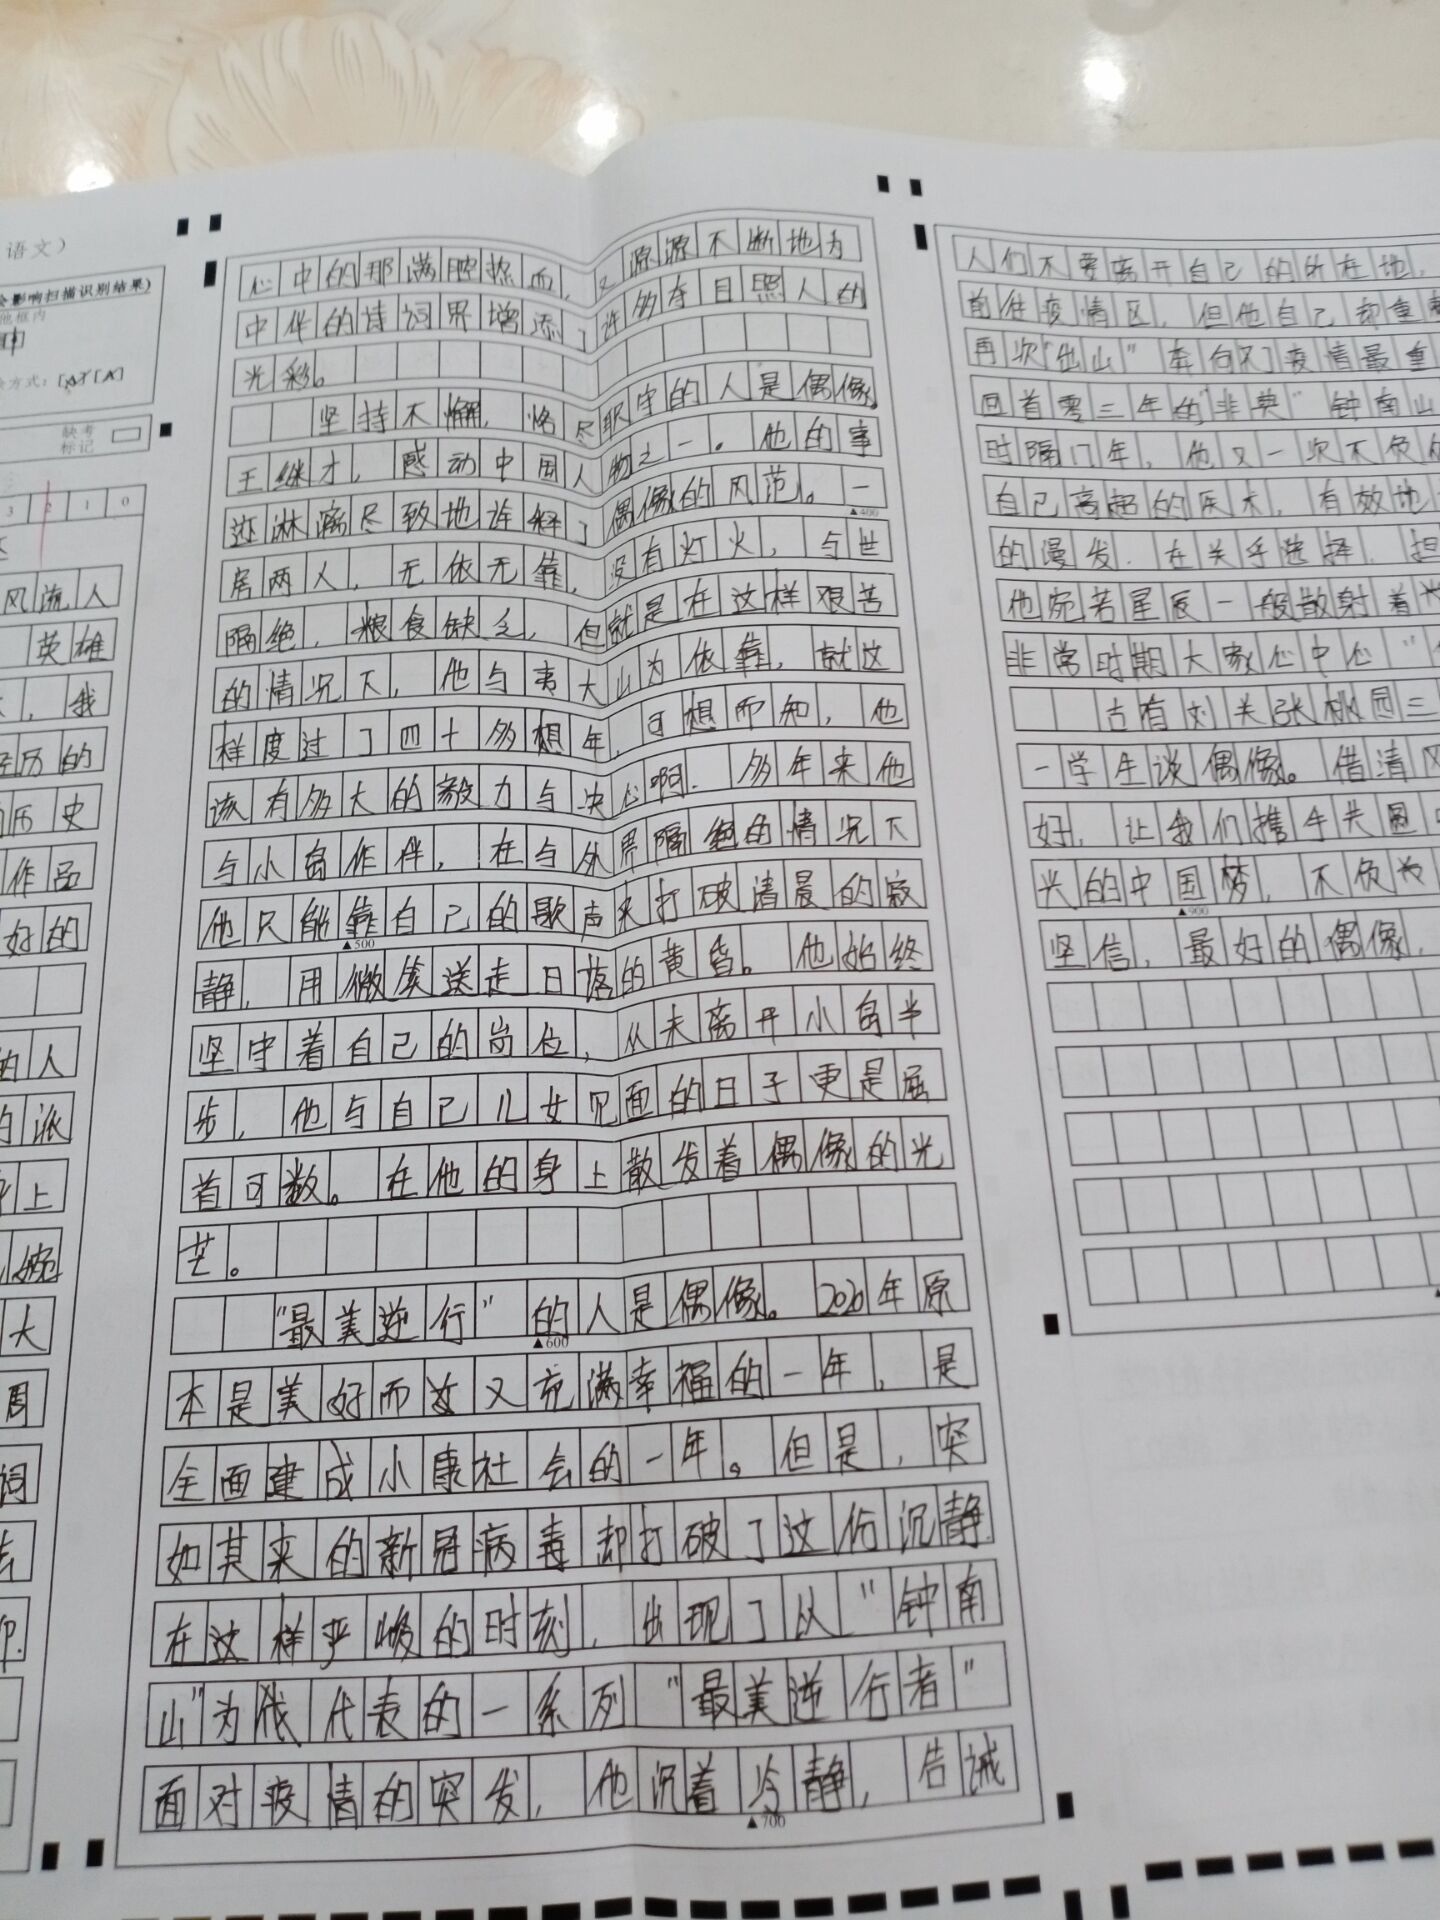 语文）
会影响扫描识别结果)
他框内
缺考
标记
3 2 1 0
风流人
英雄
，我
经历的
历史
作品
好的
的人
的派
上
婉
大
周
词
心中的那满腔热血，又源源不断地为
中华的诗词界增添了许多夺目照人的
光彩。
坚持不懈，恪尽职守的人是偶像。
王继才，感动中国人物之一。他的事
迹淋漓尽致地诠释了偶像的风范。一
▲400
房两人，无依无靠，没有灯火，与世
隔绝，粮食缺乏，但就是在这样艰苦
的情况下，他与夷大山为依靠，就这
样度过了四十多想年，可想而知，他
该有多大的毅力与决心啊。多年来他
与小岛作伴，在与外界隔绝的情况下
他只能靠自己的歌声来打破清晨的寂
▲500
静，用微笑送走日落的黄昏。他始终
坚守着自己的岗位，从未离开小岛半
步，他与自己儿女见面的日子更是屈
首可数。在他的身上散发着偶像的光
芒。
“最美逆行”的人是偶像。2020年原
▲600
本是美好而又充满幸福的一年，是
全面建成小康社会的一年。但是，突
如其来的新冠病毒却打破了这份沉静
在这样严峻的时刻，出现了以“钟南
山”为代表的一系列“最美逆行者”
面对疫情的突发，他沉着冷静，告诫
▲700
人们不要离开自己的所在地，
前往疫情区，但他自己却
再次“出山”奔向了疫情最重
回首零三年的“非典”钟南山
时隔17年，他又一次不负
自己高超的医术，有效地
的漫发，在关乎选择，担
他宛若星辰一般散射着光
非常时期大家心中心“
古有刘关张桃园三
一学生谈偶像。借清风
好，让我们携手共圆
兴的中国梦，不负
▲900
坚信，最好的偶像，